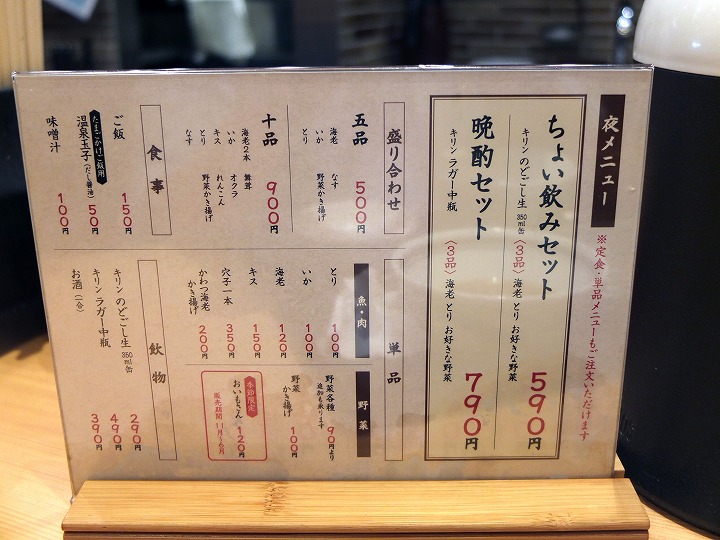 夜メニュー
※定食・単品メニューもご注文いただけます
ちょい飲みセット
キリン のどごし生 350ml缶
〈3品〉海老 とり お好きな野菜
590円
晩酌セット
キリン ラガー中瓶
〈3品〉海老 とり お好きな野菜
790円
盛り合わせ
五品
海老 なす
いか 野菜かき揚げ
とり
500円
十品
海老2本 舞茸
いか オクラ
キス れんこん
とり 野菜かき揚げ
なす
900円
食事
ご飯
150円
たまごかけご飯用
温泉玉子(だし醤油)
50円
味噌汁
100円
単品
魚・肉
とり
100円
いか
100円
海老
120円
キス
150円
穴子一本
350円
かわつ海老
かき揚げ
200円
野菜
野菜各種
追加も承ります
90円より
野菜
かき揚げ
100円
季節限定
おいもさん
120円
販売期間 11月〜6月
飲物
キリン のどごし生 350ml缶
290円
キリン ラガー中瓶
490円
お酒(一合)
390円